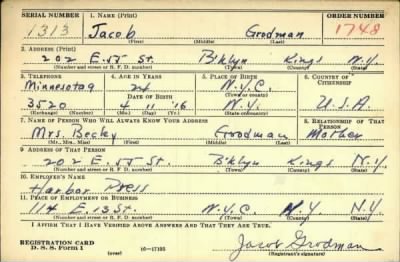 SERIAL NUMBER 1. NAME (Print) ORDER NUMBER
1313 Jacob Grodman 1748
(First) (Middle) (Last)
2. ADDRESS (Print)
202 E. 55 St. B'klyn Kings N.Y.
(Number and street or R. F. D. number) (Town) (County) (State)
3. TELEPHONE 4. AGE IN YEARS 5. PLACE OF BIRTH 6. COUNTRY OF CITIZENSHIP
Minnesota9 24 N.Y.C.
DATE OF BIRTH
3520 4 11 '16 N.Y. U.S.A.
(Exchange) (Number) (Mo.) (Day) (Yr.) (State or country)
7. NAME OF PERSON WHO WILL ALWAYS KNOW YOUR ADDRESS 8. RELATIONSHIP OF THAT PERSON
Mrs. Becky Grodman Mother
(Mr., Mrs., Miss) (First) (Middle) (Last)
9. ADDRESS OF THAT PERSON
202 E. 55 St. B'klyn Kings N.Y
(Number and street or R. F. D. number) (Town) (County) (State)
10. EMPLOYER'S NAME
Harbor Press
11. PLACE OF EMPLOYMENT OR BUSINESS
114 E. 13 St. N.Y.C. NY N.Y.
(Number and street or R. F. D. number) (Town) (County) (State)
I AFFIRM THAT I HAVE VERIFIED ABOVE ANSWERS AND THAT THEY ARE TRUE.
REGISTRATION CARD
D. S. S. FORM 1 (over) 16-17105 Jacob Grodman
(Registrant's signature)